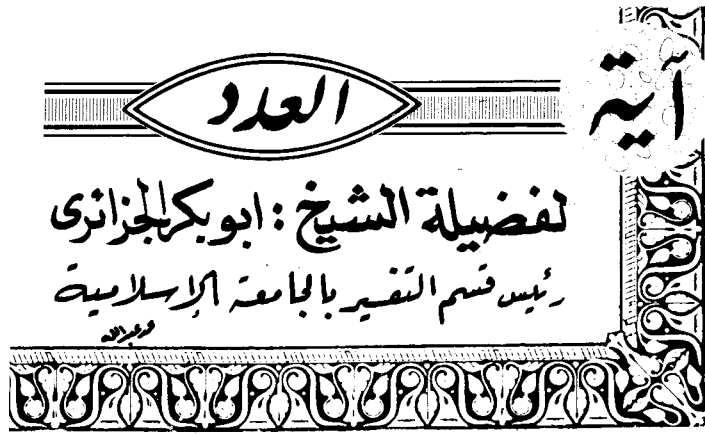 آية
العدد
لفضيلة الشيخ : ابوبكر الجزائرى
رئيس قسم التفسير بالجامعة الإسلامية